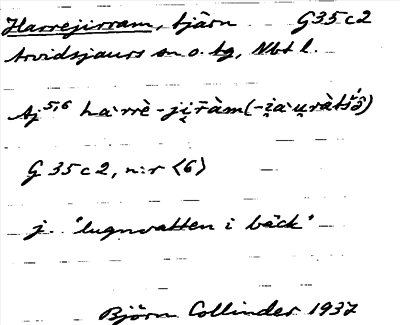 Harrejirram, tjärn G35c2
Arvidsjaurs sn o. tg, Nbt l.
Aj 5,6 ha·rrè-ji̯r̄àm (-i̯a·u̯ràtšɔ̄́)
G 35 c 2, n:r <6>
j. "lugnvatten i bäck"
Björn Collinder 1937